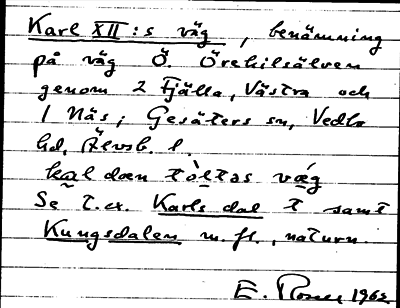 Karl XII:s väg, benämning
på väg Ö. Örekilsälven
genom 2 Fjälla, Västra och
1 Näs; Gesäters sn, Vedbo
hd, Älvsb. l.
kal dæn tòltas væ̍g
Se t.ex. Karls dal t samt
Kungsdalen m.fl., naturn.
E. 1962